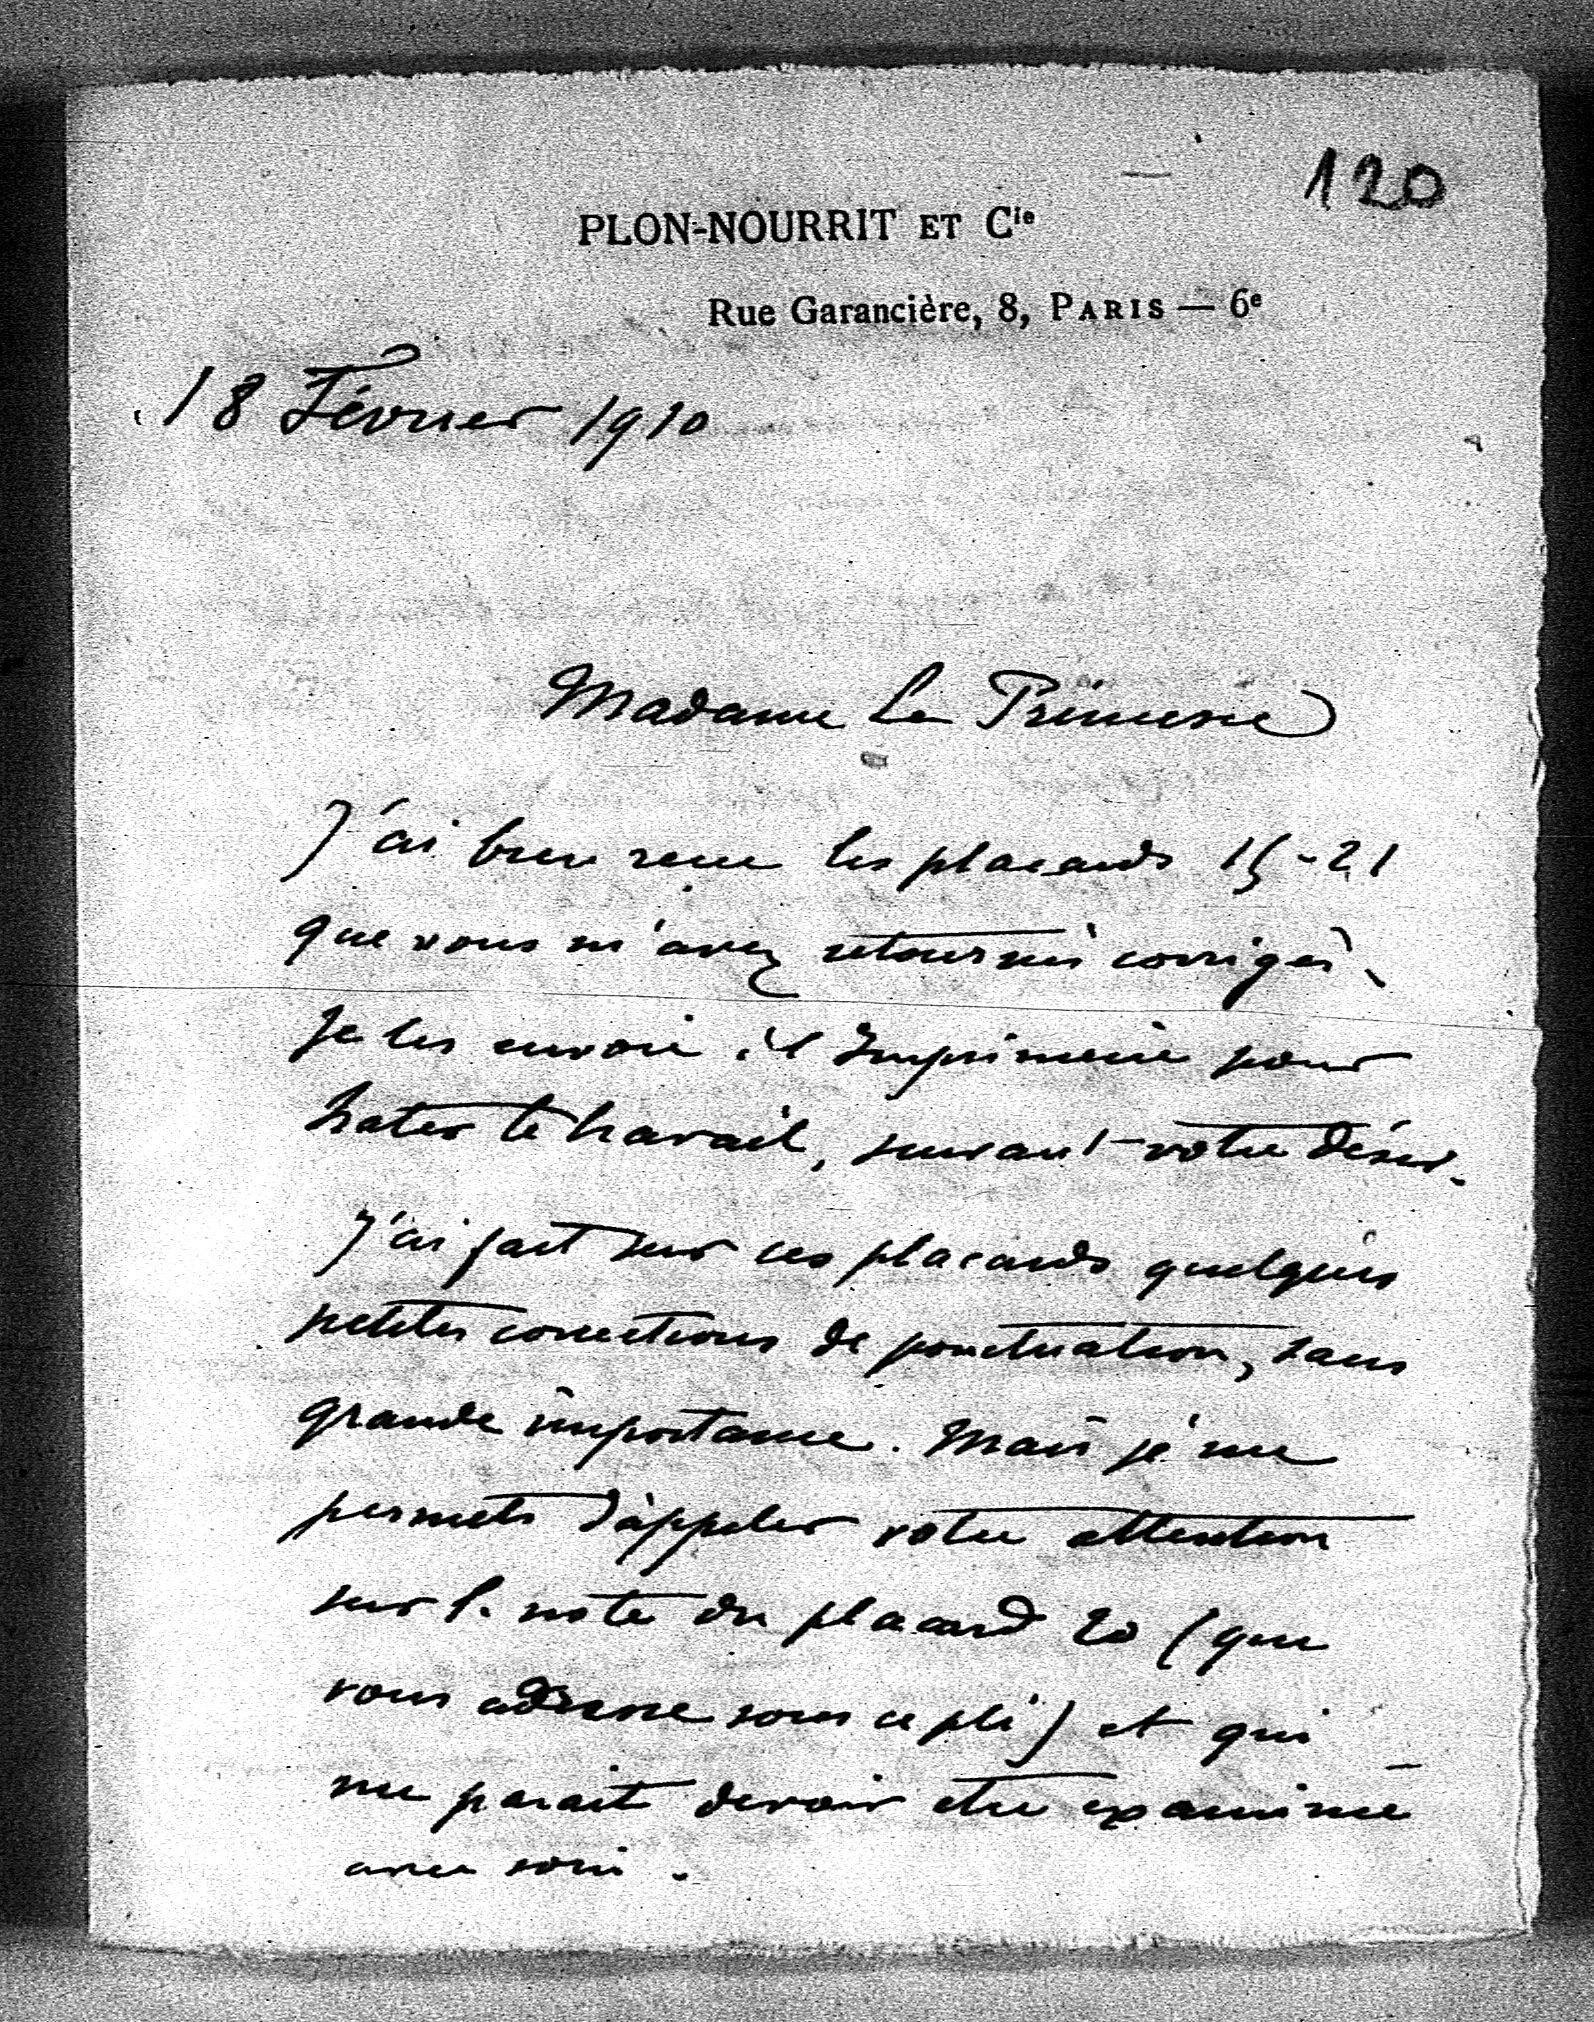 120
PLON-NOURRIT ET Cie
Rue Garancière, 8, PARIS — 6e
18 Février 1910
Madame La Princesse
J'ai bien reçu les placards 15-21
que vous m'avez retournés corrigés.
Je les envoie à l'Imprimerie pour
hater le travail, suivant votre désir.
J'ai fait sur ces placards quelques
petites corrections de ponctuation, sans
grande importance. Mais je me
permets d'appeler votre attention
sur la note du placard 20 (que
vous adresse sous ce pli) et qui
me parait devoir etre examinée
avec soin.